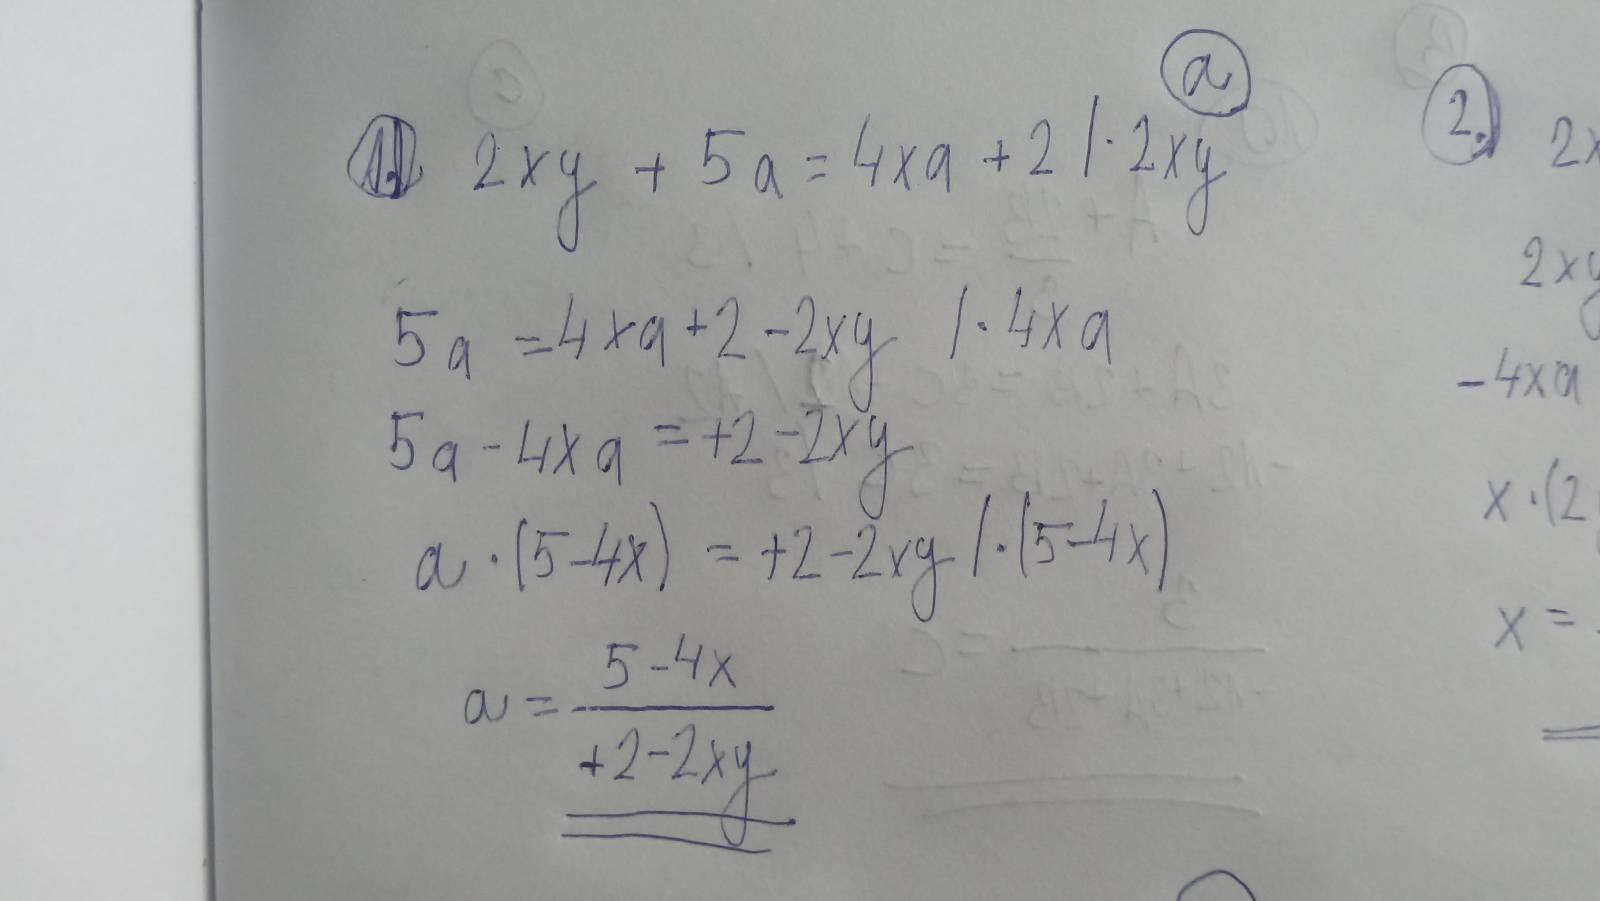 a
1. 2xy + 5a = 4xa + 2 / · 2xy
5a = 4xa + 2 - 2xy / · 4xa
5a - 4xa = +2 - 2xy
a · (5 - 4x) = +2 - 2xy / · (5 - 4x)
a = (5 - 4x) / (+2 - 2xy)
2. 2x
2xy
- 4xa
x · (2
x =